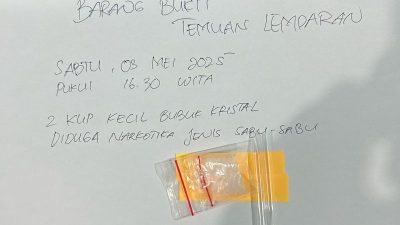 BARANG BUKTI
TEMUAN LEMPARAN
SABTU, 03 MEI 2025
PUKUL 16.30 WITA
2 KLIP KECIL BUBUK KRISTAL
DIDUGA NARKOTIKA JENIS SABU-SABU